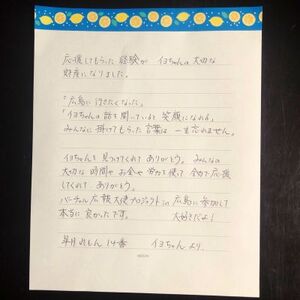 応援してもらった経験が イヨちゃんの大切な
財産になりました。
「広島に行きたくなった」
「イヨちゃんの話を聞いていると笑顔になれる」
みんなに掛けてもらった言葉は 一生忘れません。
イヨちゃんを見つけてくれて ありがとう。 みんなの
大切な 時間や お金や 労力を使って 全力で応援
してくれて ありがとう。
バーチャル広報大使プロジェクト in 広島に 参加して
本当に 良かったです。 大好きだよ!
14番 イヨちゃん より